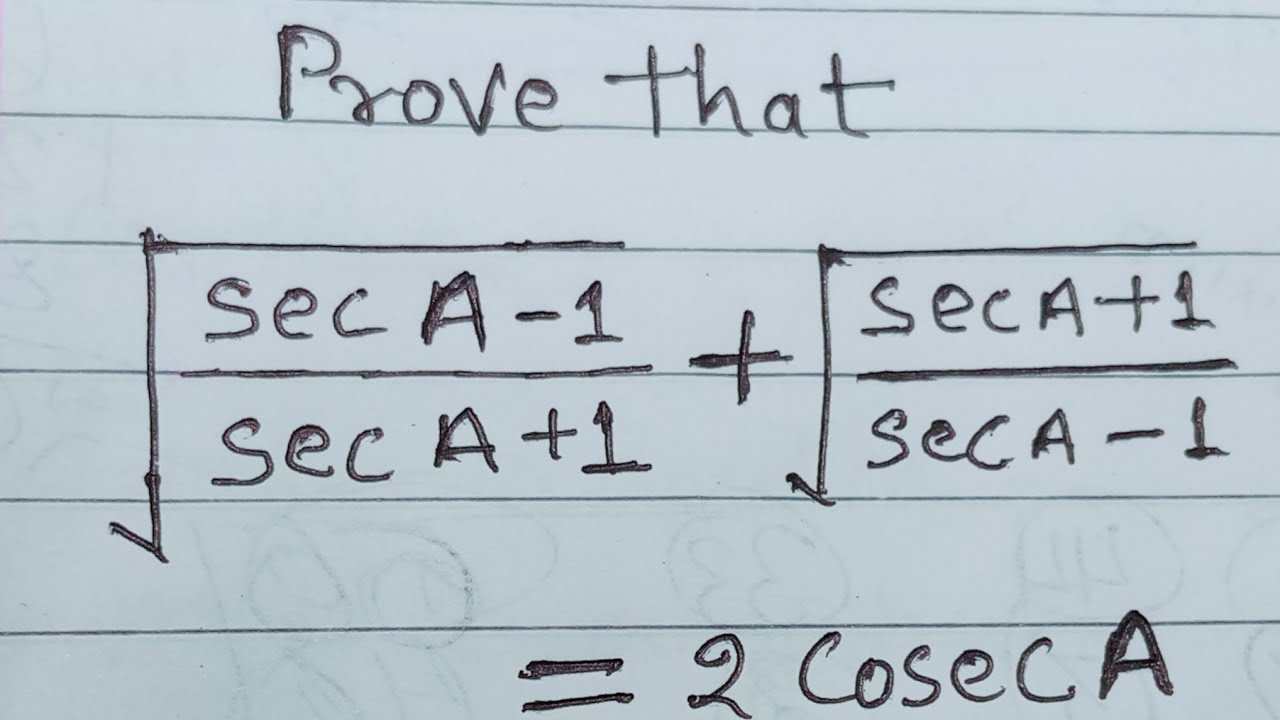 Prove that
√(sec A - 1 / sec A + 1) + √(sec A + 1 / sec A - 1)
= 2 cosec A